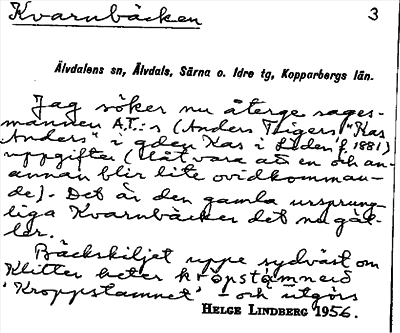 Kvarnbäcken
3
Älvdalens sn, Älvdals, Särna o. Idre tg, Kopparbergs län.
Jag söker nu återge sages-
männen A.T.:s (Anders Tigers "Kas
Anders" i gden Kas i Liden f. 1881)
uppgifter (låt vara att en och an-
annan blir lite ovidkomman-
de). Det är den gamla ursprung-
liga Kvarnbäcken det nu gäl-
ler.
Bäckskiljet uppe sydväst om
Klitten heter
"Kroppstamnet" – och utgörs
HELGE LINDBERG 1956.